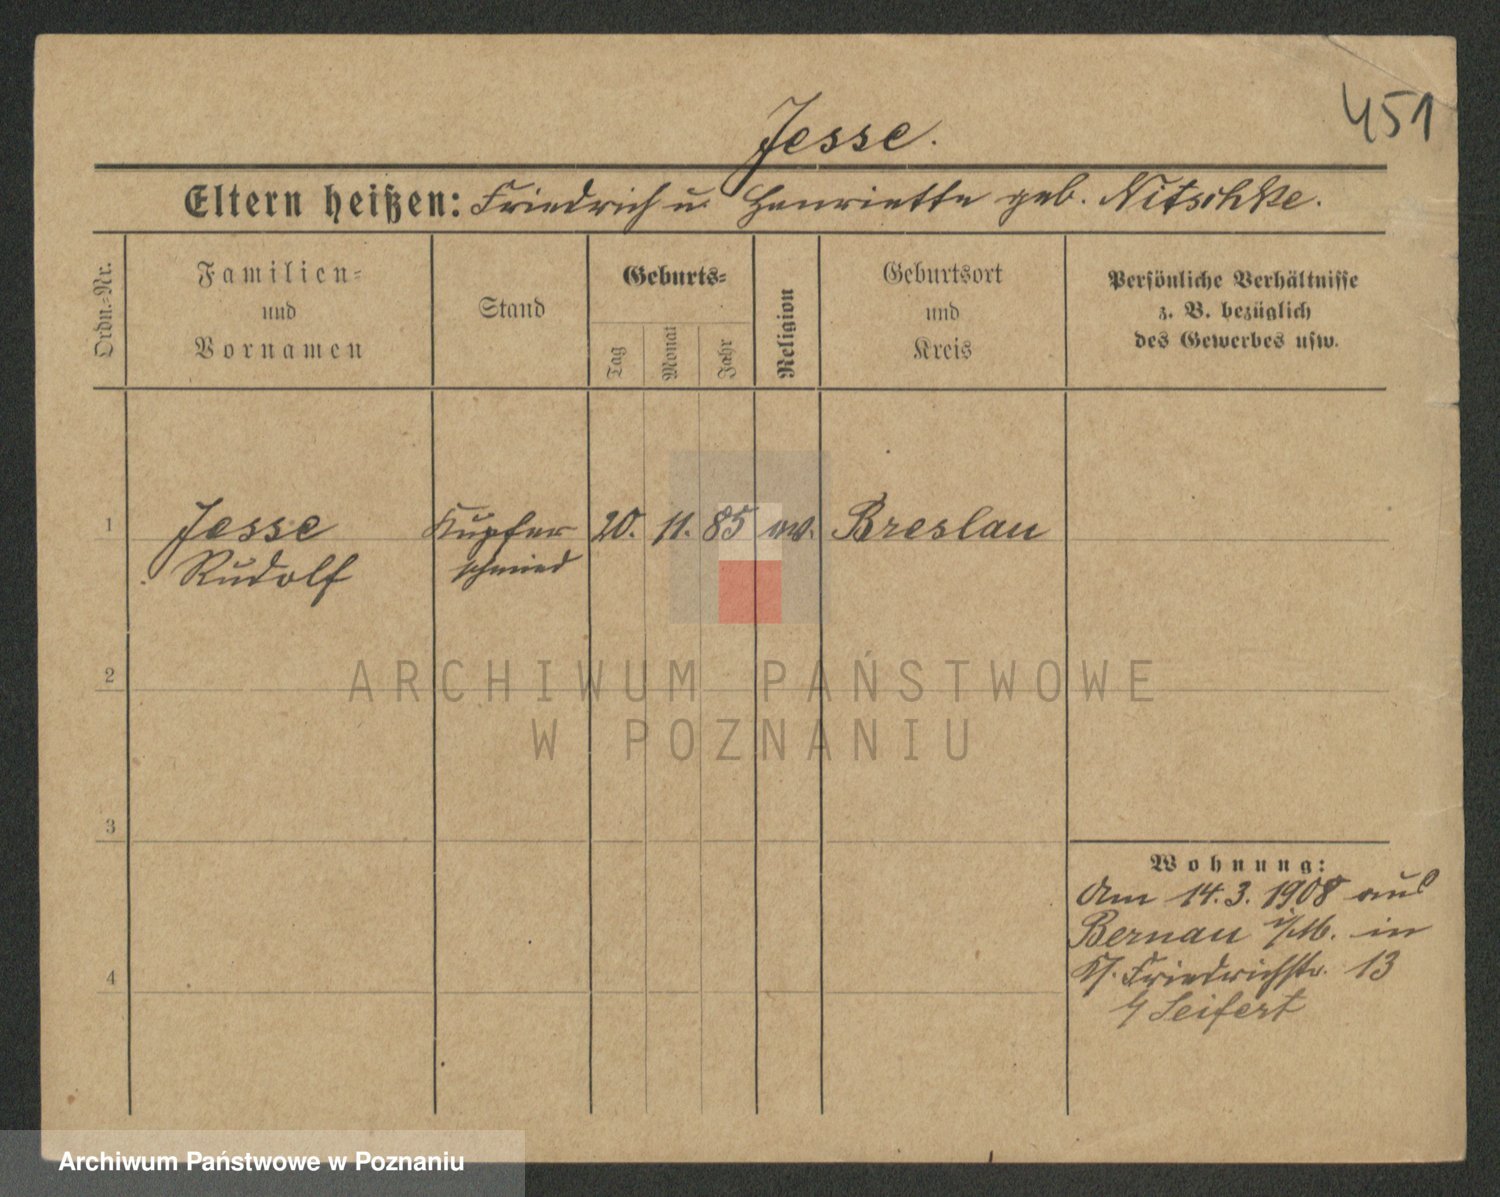 451
Jesse.
Eltern heißen: Friedrich u. Henriette geb. Nitschke.
Ordn.-Nr.
Familien-
und
Vornamen
Stand
Geburts-
Tag
Monat
Jahr
Religion
Geburtsort
und
Kreis
Persönliche Verhältnisse
z. B. bezüglich
des Gewerbes usw.
1
Jesse
Rudolf
Kupfer
schmied
20. 11. 85 ev. Breslau
2
ARCHIWUM PAŃSTWOWE
W POZNANIU
3
Wohnung:
Am 14.3.1908 aus
Bernau i/M. in
Kl. Friedrichstr. 13
b/ Seifert
4
Archiwum Państwowe w Poznaniu